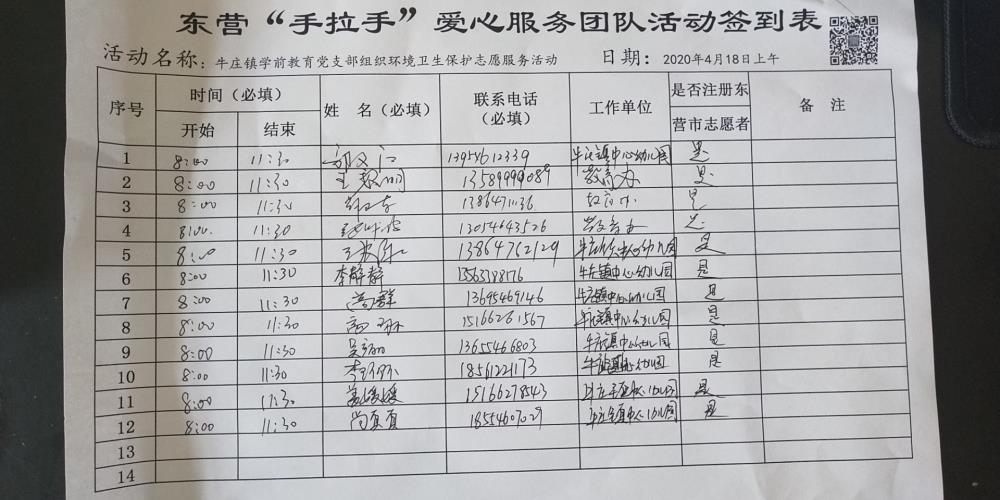 东营“手拉手”爱心服务团队活动签到表
活动名称：牛庄镇学前教育党支部组织环境卫生保护志愿服务活动 日期：2020年4月18日上午
序号 时间（必填） 姓 名（必填） 联系电话（必填） 工作单位 是否注册东营市志愿者 备 注
开始 结束
1 8:00 11:30 牛庄镇中心幼儿园 是
2 8:00 11:30 王 13589999089 教育办 是
3 8:00 11:30 13864711136 是
4 8:00 11:30 13054643526 教育办 是
5 8:00 11:30 王 13864762129 幼儿园 是
6 8:00 11:30 李静静 13563188176 牛庄镇中心幼儿园 是
7 8:00 11:30 尚群 13695469146 牛庄镇中心幼儿园 是
8 8:00 11:30 15166261567 牛庄镇中心幼儿园 是
9 8:00 11:30 吴 13655466803 牛庄镇中心幼儿园 是
10 8:00 11:30 李 18561221173 牛庄镇 幼儿园 是
11 8:00 11:30 媛媛 15166278543 牛庄 幼儿园 是
12 8:00 11:30 尚页页 18554607029 牛庄镇中心幼儿园 是
13
14